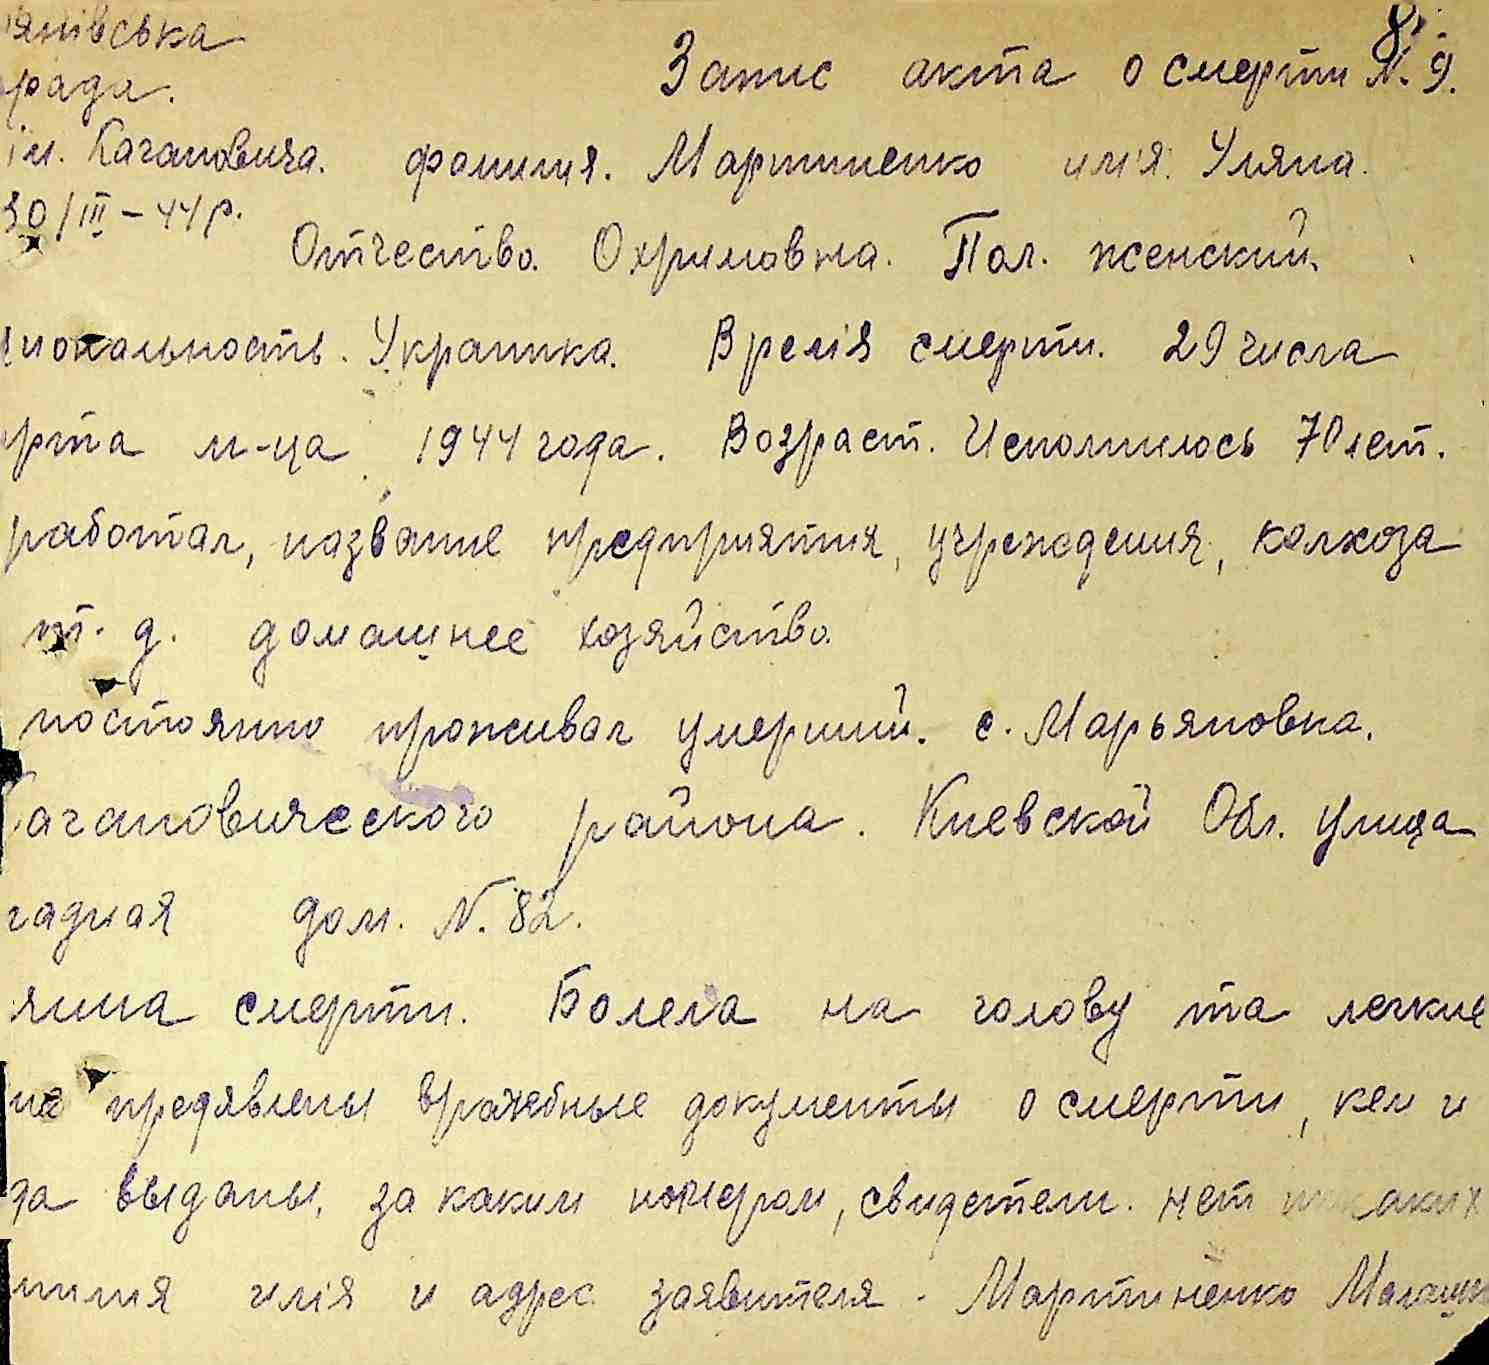 янівська
рада.
8.
Запис акта о смерти N. 9.
ім. Кагановича. фамилия. Мартиненко имія. Уляна.
30/III – 44 р.
Отчество. Охримовна. Пол. женский.
циональность. Украинка. Времія смерти. 29 числа
рта м-ца 1944 года. Возраст. Исполнилось 70 лет.
работал, название предприятия, учреждения, колхоза
т. д. домашнее хозяйство.
постоянно проживал умерший. с. Марьяновка.
Кагановического района. Киевской Обл. улица
падная дом. N. 82.
чина смерти. Болела на голову та легкие
предявлены врачебные документы о смерти, кем и
да выданы, за каким номером, свидетели. нет никаких
милия имія и адрес заявителя. Мартиненко